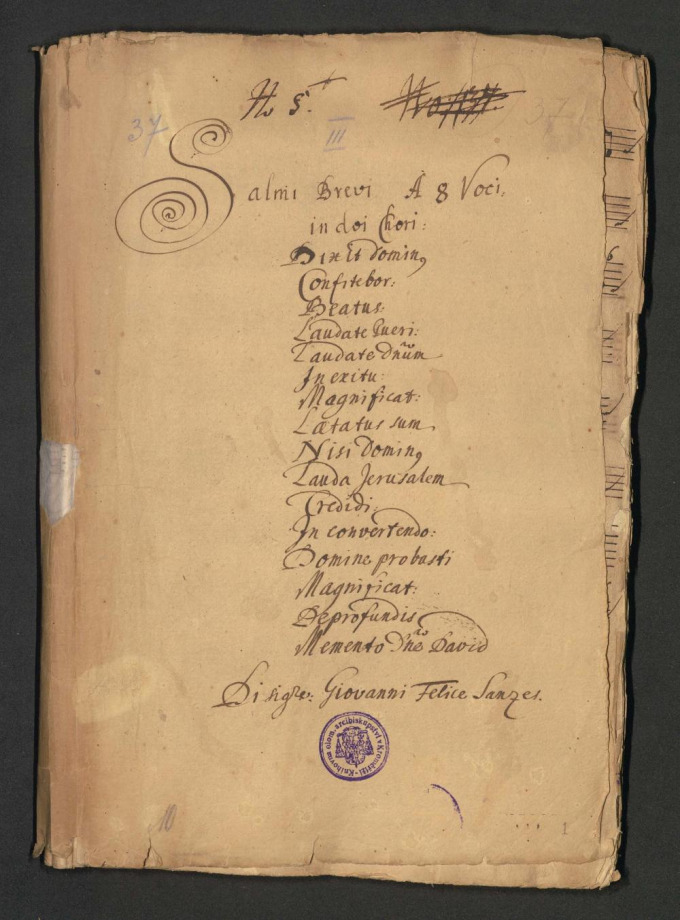 No 5.
37
III
Salmi Brevi A 8 Voci.
in doi Chori:
Dixit Dominꝯ
Confitebor:
Beatus:
Laudate Pueri:
Laudate Dnum
In exitu:
Magnificat:
Lætatus sum
Nisi Dominꝯ
Lauda Jerusalem
Credidi:
In convertendo:
Domine probasti
Magnificat:
De profundis
Memento Dne David
Di sigre: Giovanni Felice Sanzes.
Knihovna olom. arcibiskupství v Kroměříži
10
1